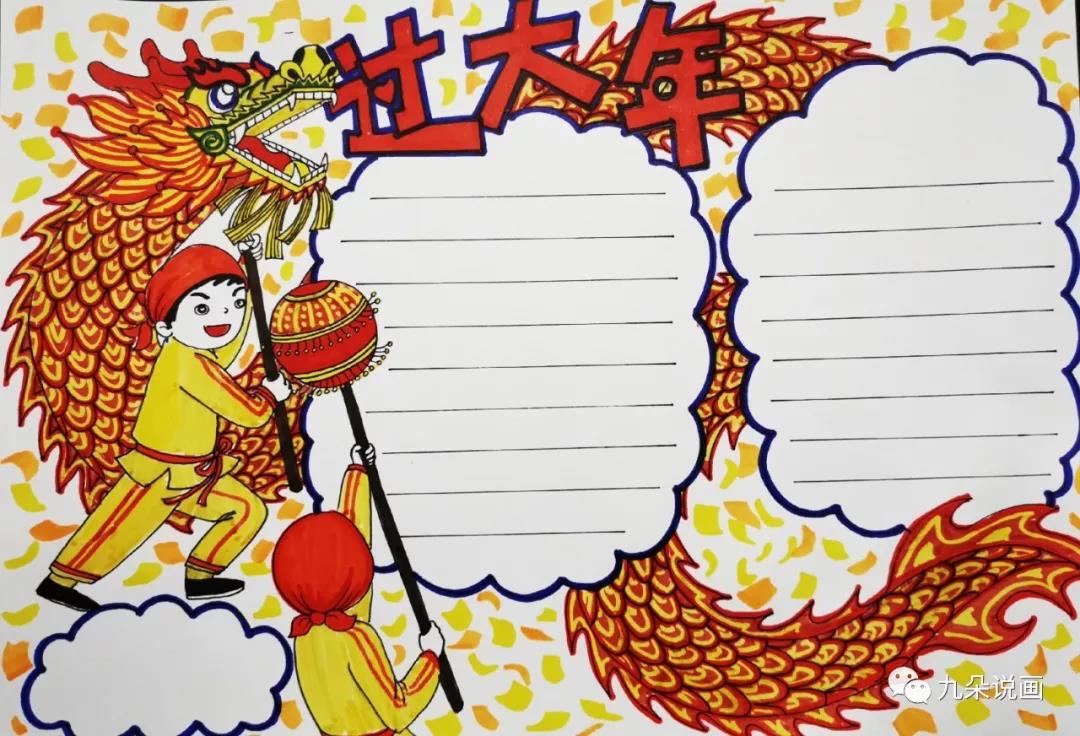 过大年
九朵说画